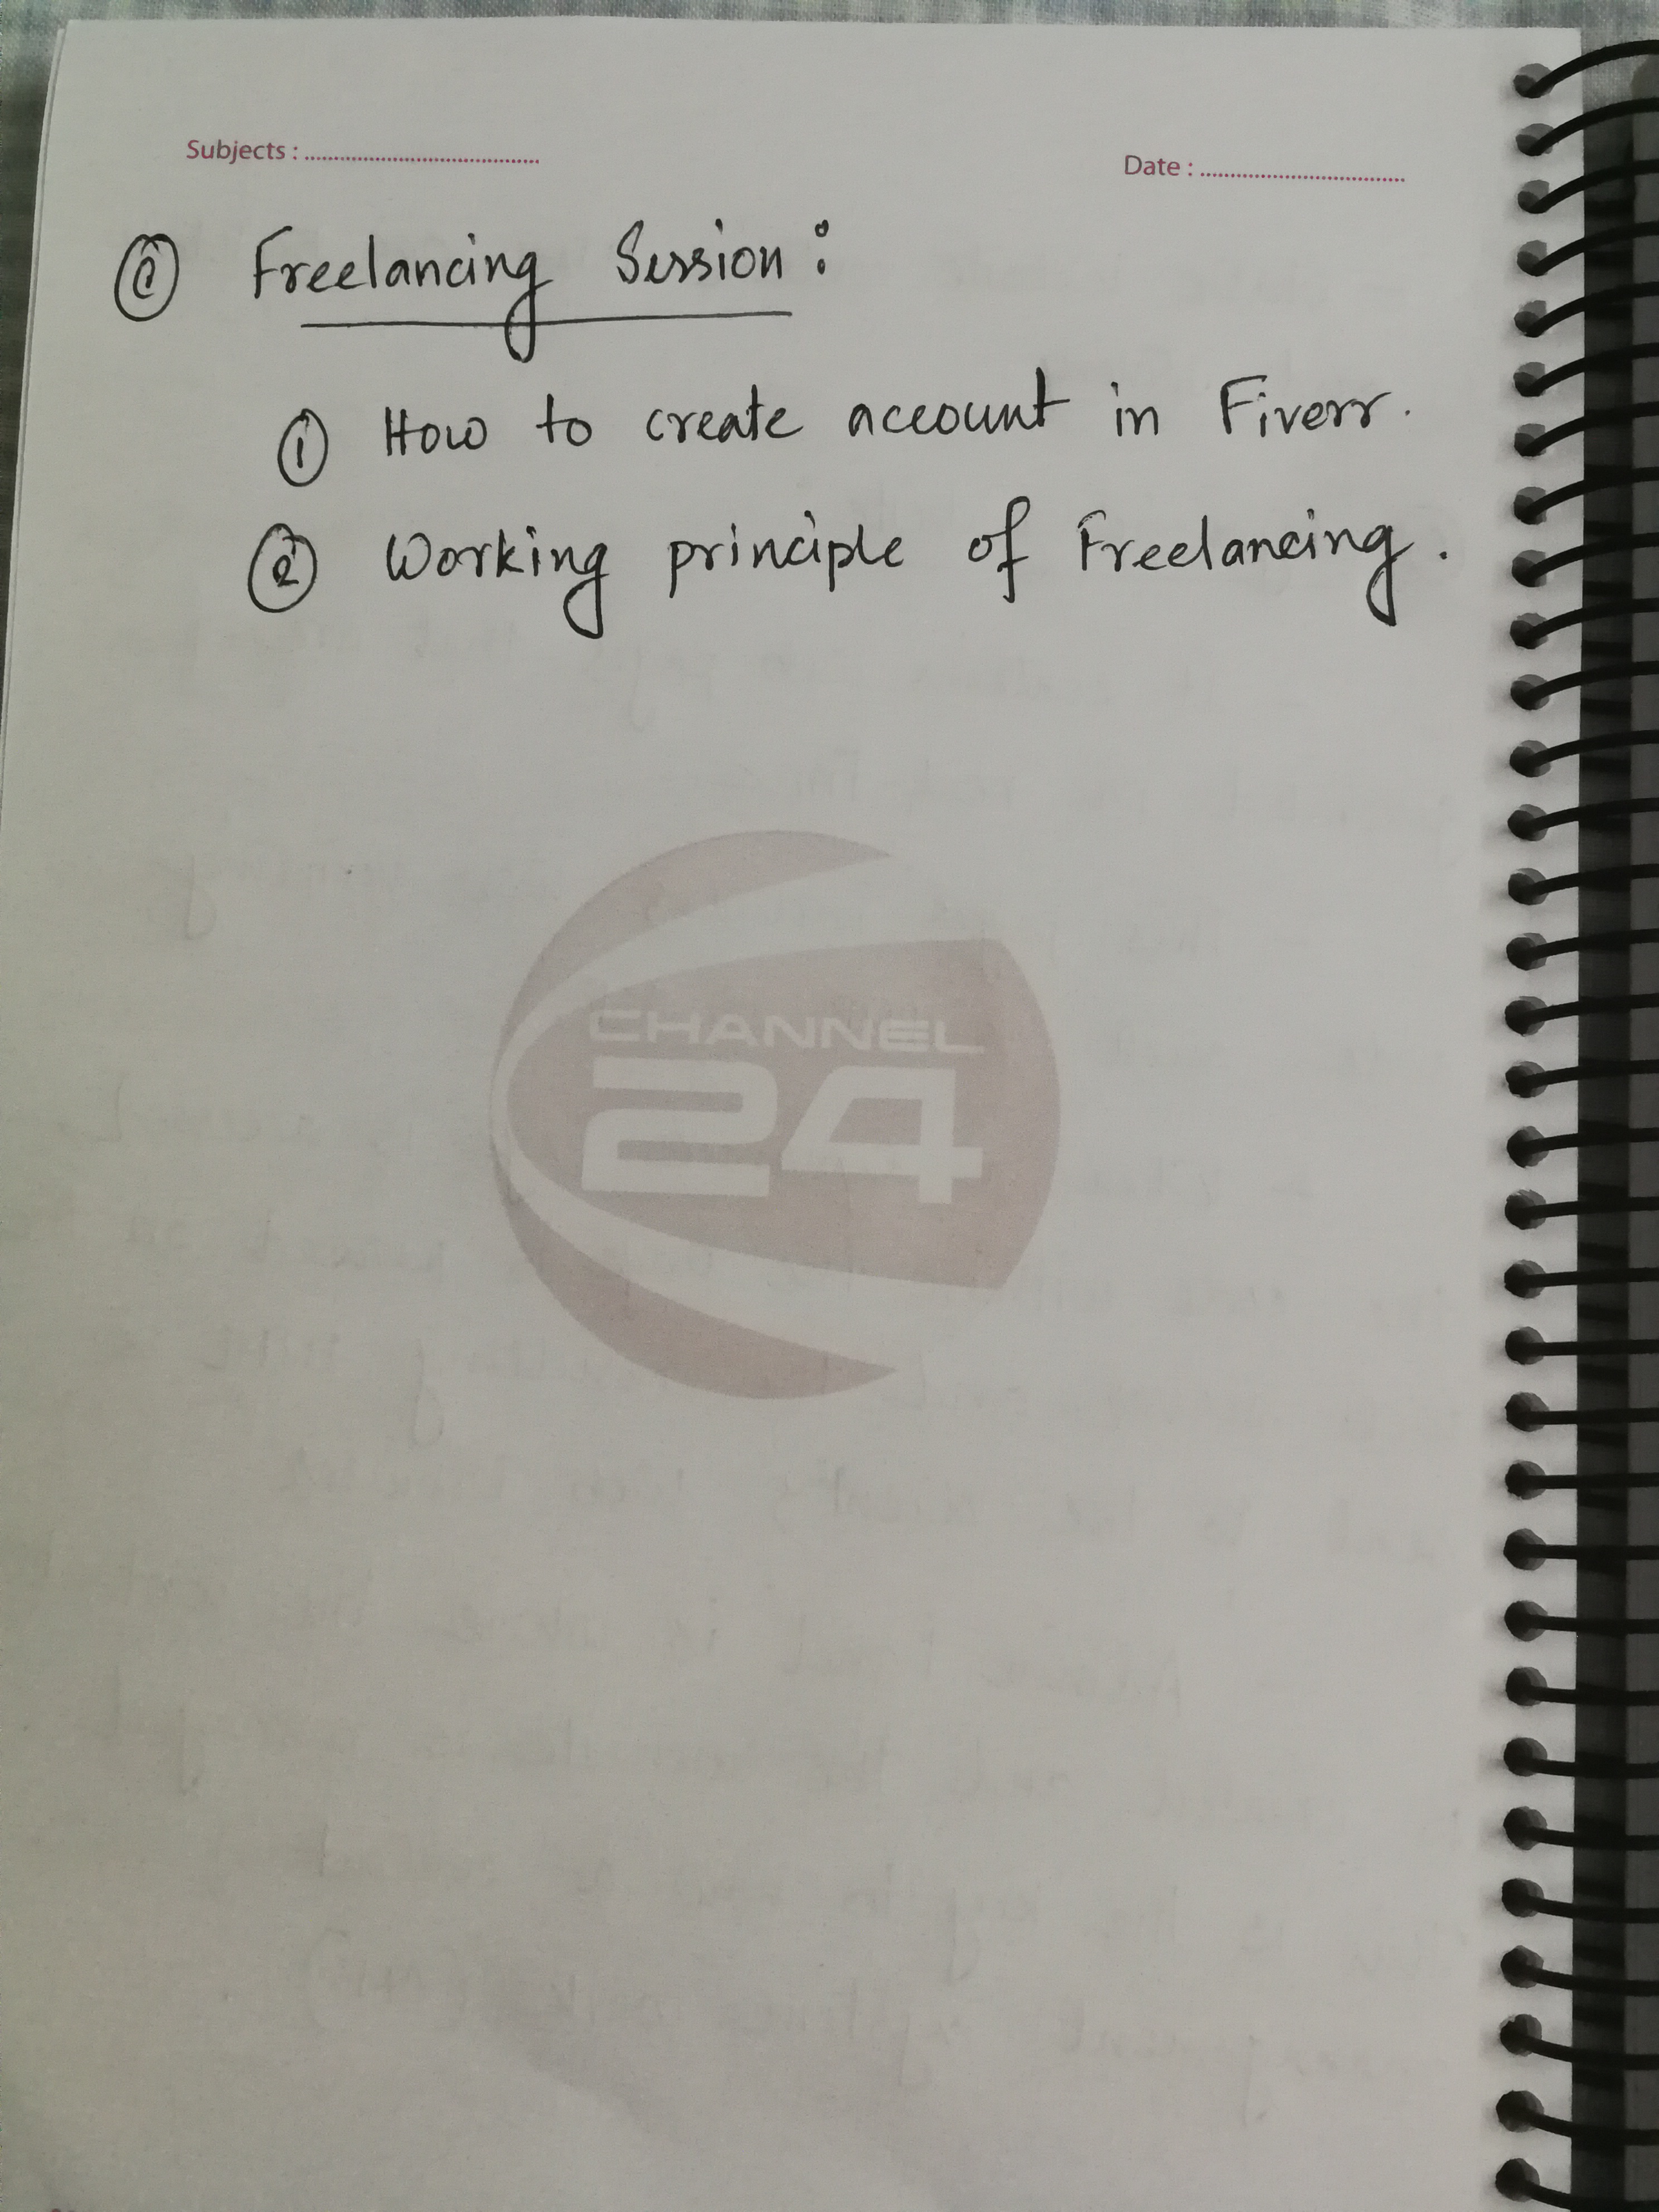 Subjects : ........................................
Date : ...................................
@ Freelancing Session :
① How to create account in Fiverr.
② Working principle of Freelancing.
CHANNEL
24